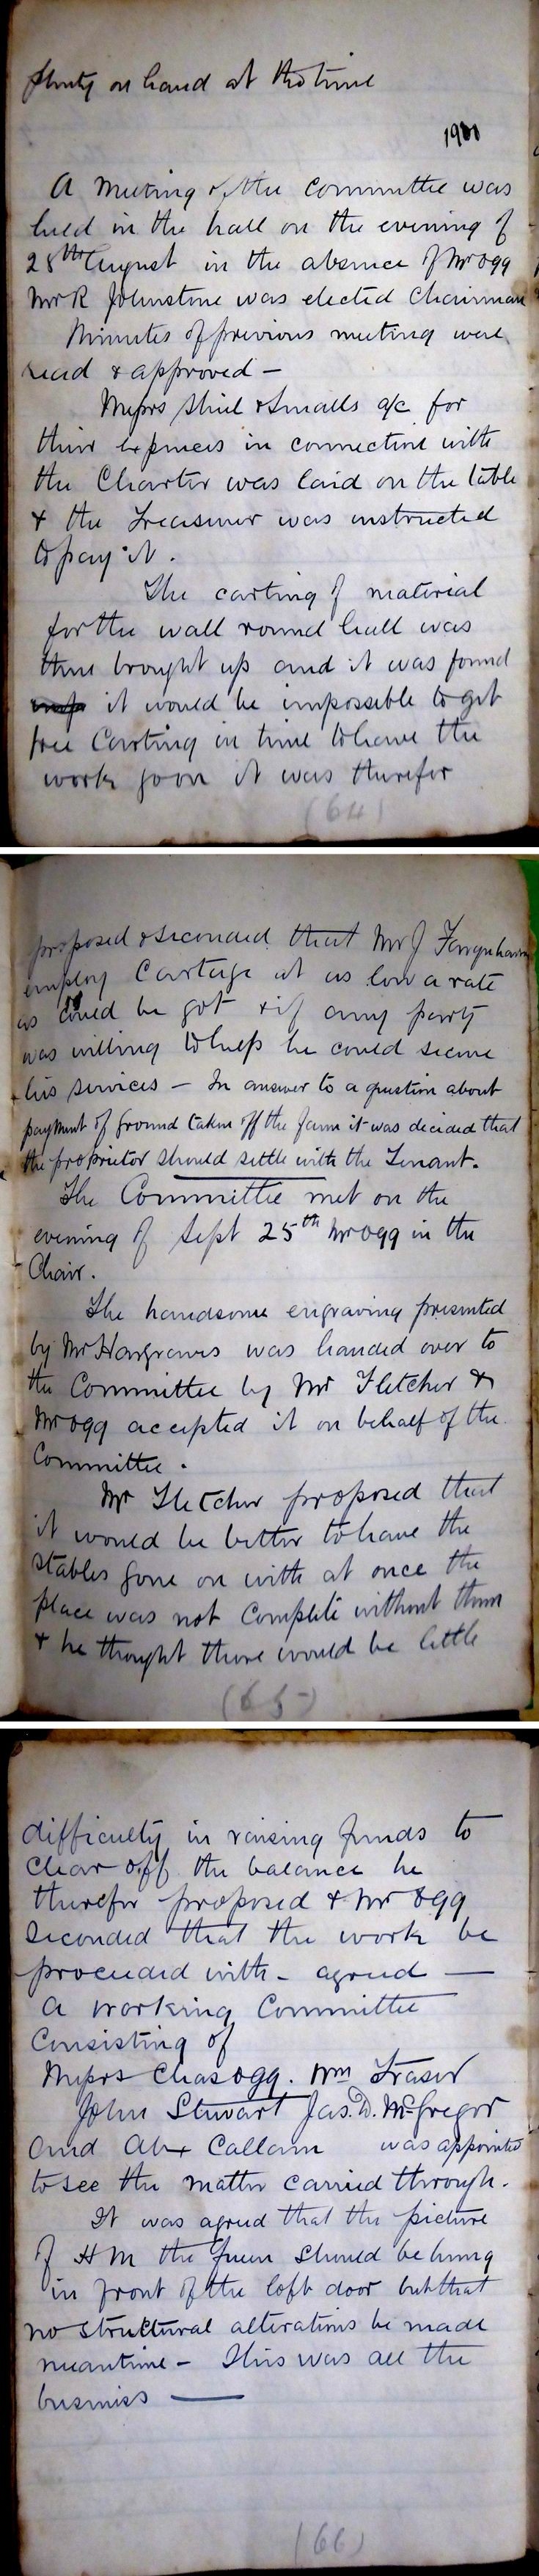 plenty on hand at the time
1900
A meeting of the Committee was
held in the hall on the evening of
28th August in the absence of Mr Ogg
Mr R Johnstone was elected Chairman
Minutes of previous meeting were
read & approved –
Messrs Shiel & Smalls a/c for
their expenses in connection with
the Charter was laid on the table
& the Treasurer was instructed
to pay it.
The carting of material
for the wall round hall was
then brought up and it was found
it would be impossible to get
free Carting in time to have the
work gone on it was therefor
(64)
proposed & seconded that Mr J Farquharson
employ Cartage at as low a rate
as could be got & if any party
was willing to help he could secure
his services – In answer to a question about
payment of ground taken off the farm it was decided that
the proprietor should settle with the Tenant.
The Committee met on the
evening of Sept 25th Mr Ogg in the
Chair.
The handsome engraving presented
by Mr Hargreaves was handed over to
the Committee by Mr Fletcher &
Mr Ogg accepted it on behalf of the
Committee.
Mr Fletcher proposed that
it would be better to have the
Stables gone on with at once the
place was not Complete without them
& he thought there would be little
(65)
difficulty in raising funds to
clear off the balance he
therefor proposed & Mr Ogg
seconded that the work be
proceeded with – agreed —
A Working Committee
Consisting of
Messrs Chas Ogg. Wm Fraser
John Stewart Jas. D. McGregor
and Alex Callam was appointed
to see the matter carried through.
It was agreed that the picture
of H M the Queen should be hung
in front of the loft door but that
no structural alterations be made
meantime – This was all the
business —
(66)